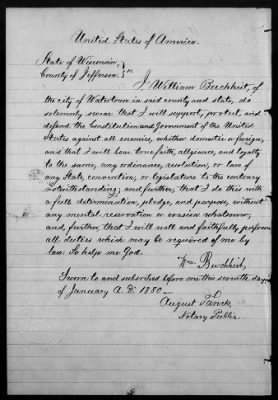 United States of America.
State of Wisconsin,
County of Jefferson. } ss
I, William Buchheit, of
the city of Watertown in said county and state, do
solemnly swear that I will support, protect, and
defend the Constitution and Government of the United
States against all enemies, whether domestic or foreign,
and that I will bear true faith, allegiance, and loyalty
to the same, any ordinance, resolution, or law of
any State, convention, or legislature to the contrary
notwithstanding; and further, that I do this with
a full determination, pledge, and purpose, without
any mental reservation or evasion whatsoever;
and, further, that I will well and faithfully perform
all duties which may be required of me by
law. So help me God.
Wm. Buchheit,
Sworn to and subscribed before me this seventh day
of January A. D. 1880—
August
Notary Public.